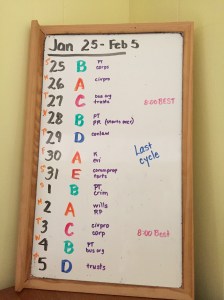 Jan 25 - Feb 5
25 B PT
corps
26 A civpro
27 C bus org
trusts 8:00 BEST
28 B PT
PR
29 D conlaw
30 A K
evi
31 E commprop
torts
1 B PT
crim
2 A wills
RP
3 C civpro
corp 8:00 Best
4 B PT
bus org
5 D trusts
Last
cycle